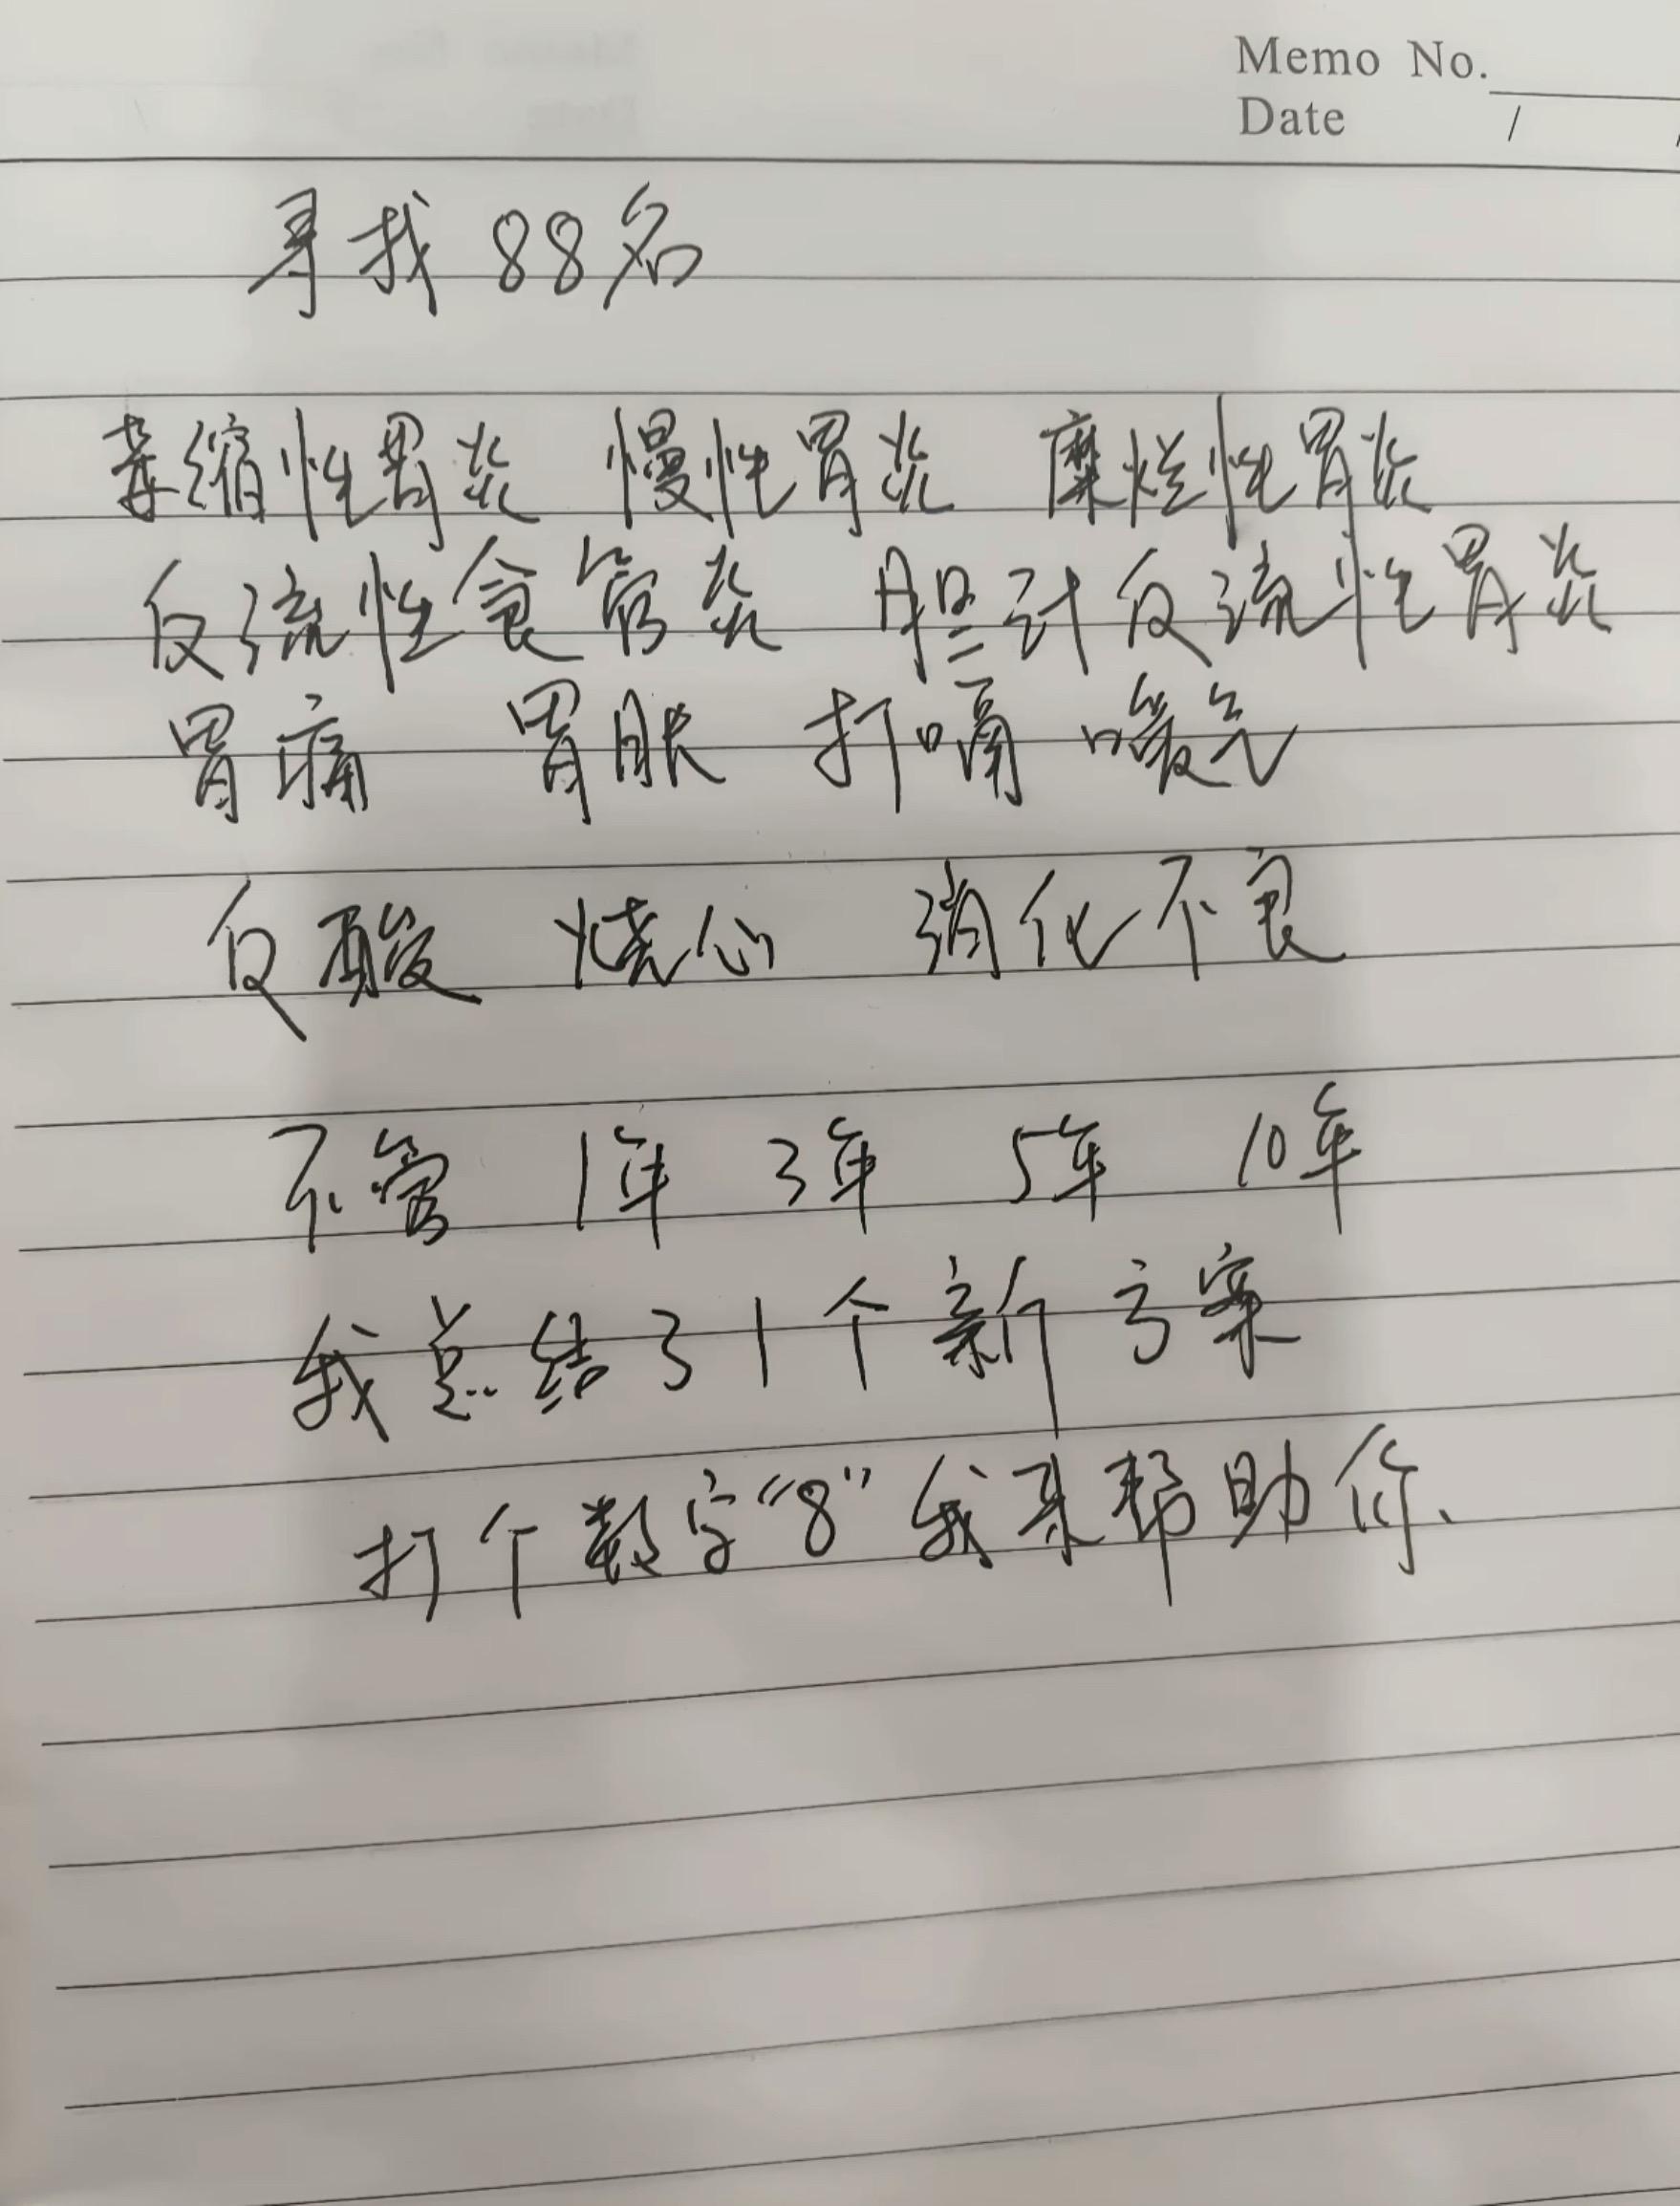 Memo No.
Date / /
寻找 88名
萎缩性胃炎 慢性胃炎 糜烂性胃炎
反流性食管炎 胆汁反流性胃炎
胃痛 胃胀 打嗝 嗳气
反酸 烧心 消化不良
不管 1年 3年 5年 10年
我总结了1个新方案
打个数字“8”我来帮助你、